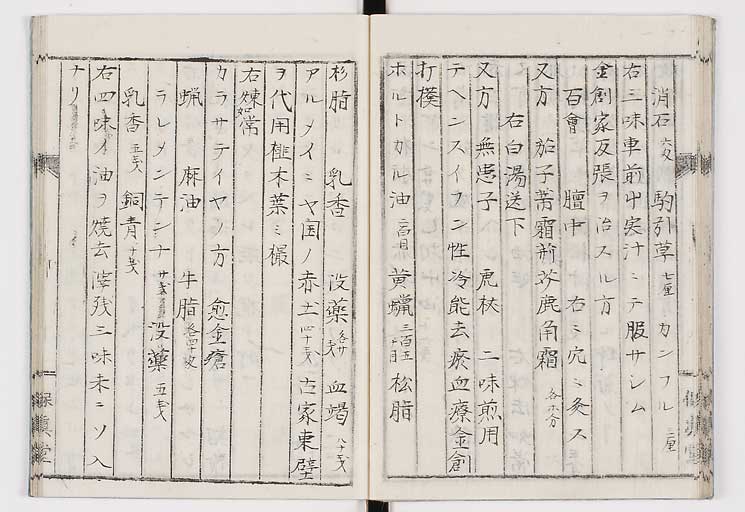 消石 六匁 駒引草 七厘 カンフル 二厘
右三味車前草寒汁ニテ服サシム
金創家反張ヲ治スル方
百會 膻中 右ニ穴ニ灸ス
又方 茄子蒂霜 荊芥 鹿角霜 各六分
右白湯送下
又方 無患子 虎杖 二味煎用
テヘンスイフン性冷能去瘀血療金創
打撲
ホルトカル油 黄蝋 松脂
杉脂 乳香 没薬 血竭
アルメイニヤ国ノ赤土 四十戔 古家東壁
ヲ代用榧木葉ニ撮
右煉如常
カラサテイヤノ方 愈金瘡
蝋 麻油 牛脂
ラレメンテンナ 没薬 五戔
乳香 五戔 銅青 十戔
右四味イ油ヲ焼去滓残三味末ニソ入
ナリ
保真堂